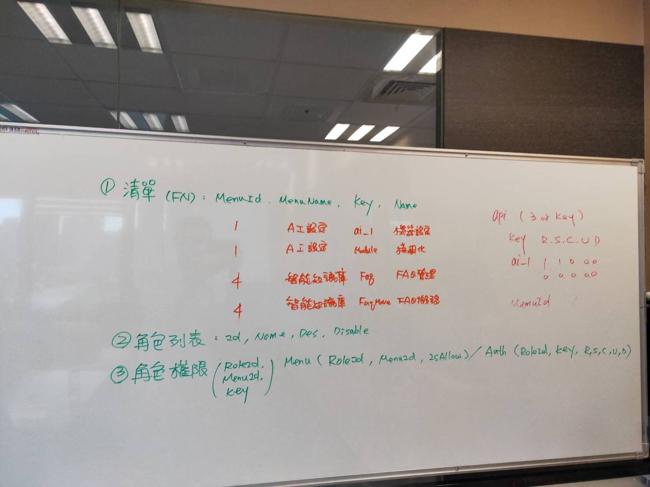 ① 清單 (FN): MenuId. MenuName, Key, Name
1 AI設定 ai_1 機器設定
1 AI設定 Module 模組化
4 智能知識庫 Faq FAQ管理
4 智能知識庫 FAQ搬移
② 角色列表: Id, Name, Des, Disable
③ 角色權限 (RoleId, MenuId, Key) Menu (RoleId, MenuId, IsAllow) / Auth (RoleId, Key, R,S,C,U,D)
api (3 or Key)
Key R.S.C.U.D
ai_1 1 1 0 0 0
0 0 0 0 0
MenuId